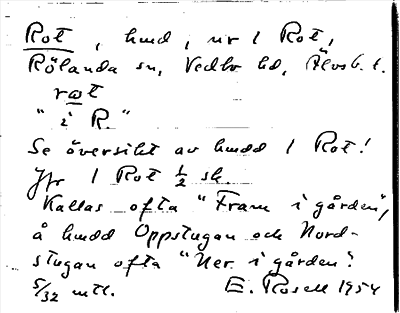 Rot, hmd, nr 1 Rot,
Rölanda sn, Vedbo hd, Älvsb. l.
rωt
"i R."
Se översikt av hmdd 1 Rot!
Jfr 1 Rot 1/2 sk.
Kallas ofta "Fram i gården",
å hmdd Oppstugan och Nord-
stugan ofta "Ner i gården".
5/32 mtl. E. Rosell 1954